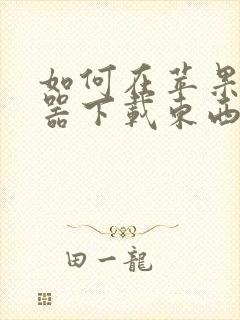 如何在苹果
器下载东西
田一龍